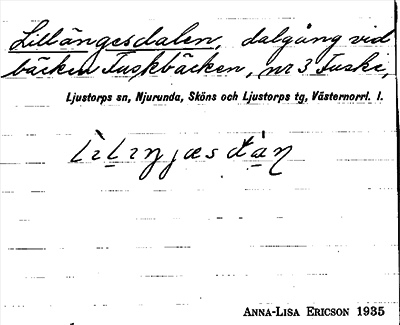 Lillängesdalen, dalgång vid
bäcken Tuskbäcken, nr 3 Tuske,
Ljustorps sn, Njurunda, Sköns och Ljustorps tg, Västernorrl. l.
ANNA-LISA ERICSON 1935